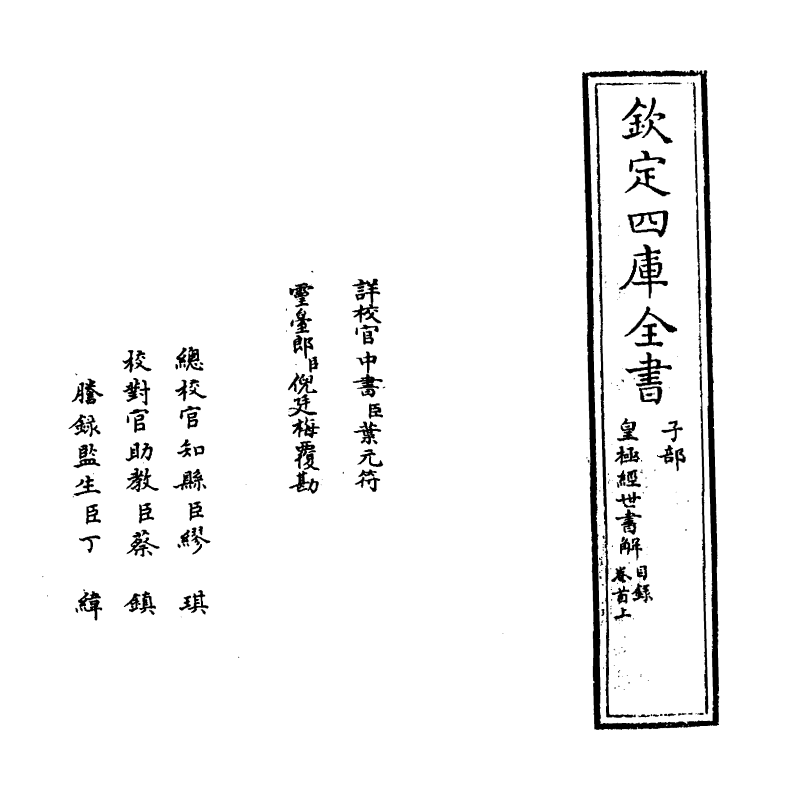 欽定四庫全書
子部
皇極經世書解
目錄
卷首上
詳校官中書臣葉元符
靈臺郎臣倪廷梅覆勘
總校官知縣臣繆琪
校對官助教臣蔡鎮
謄錄監生臣丁緯